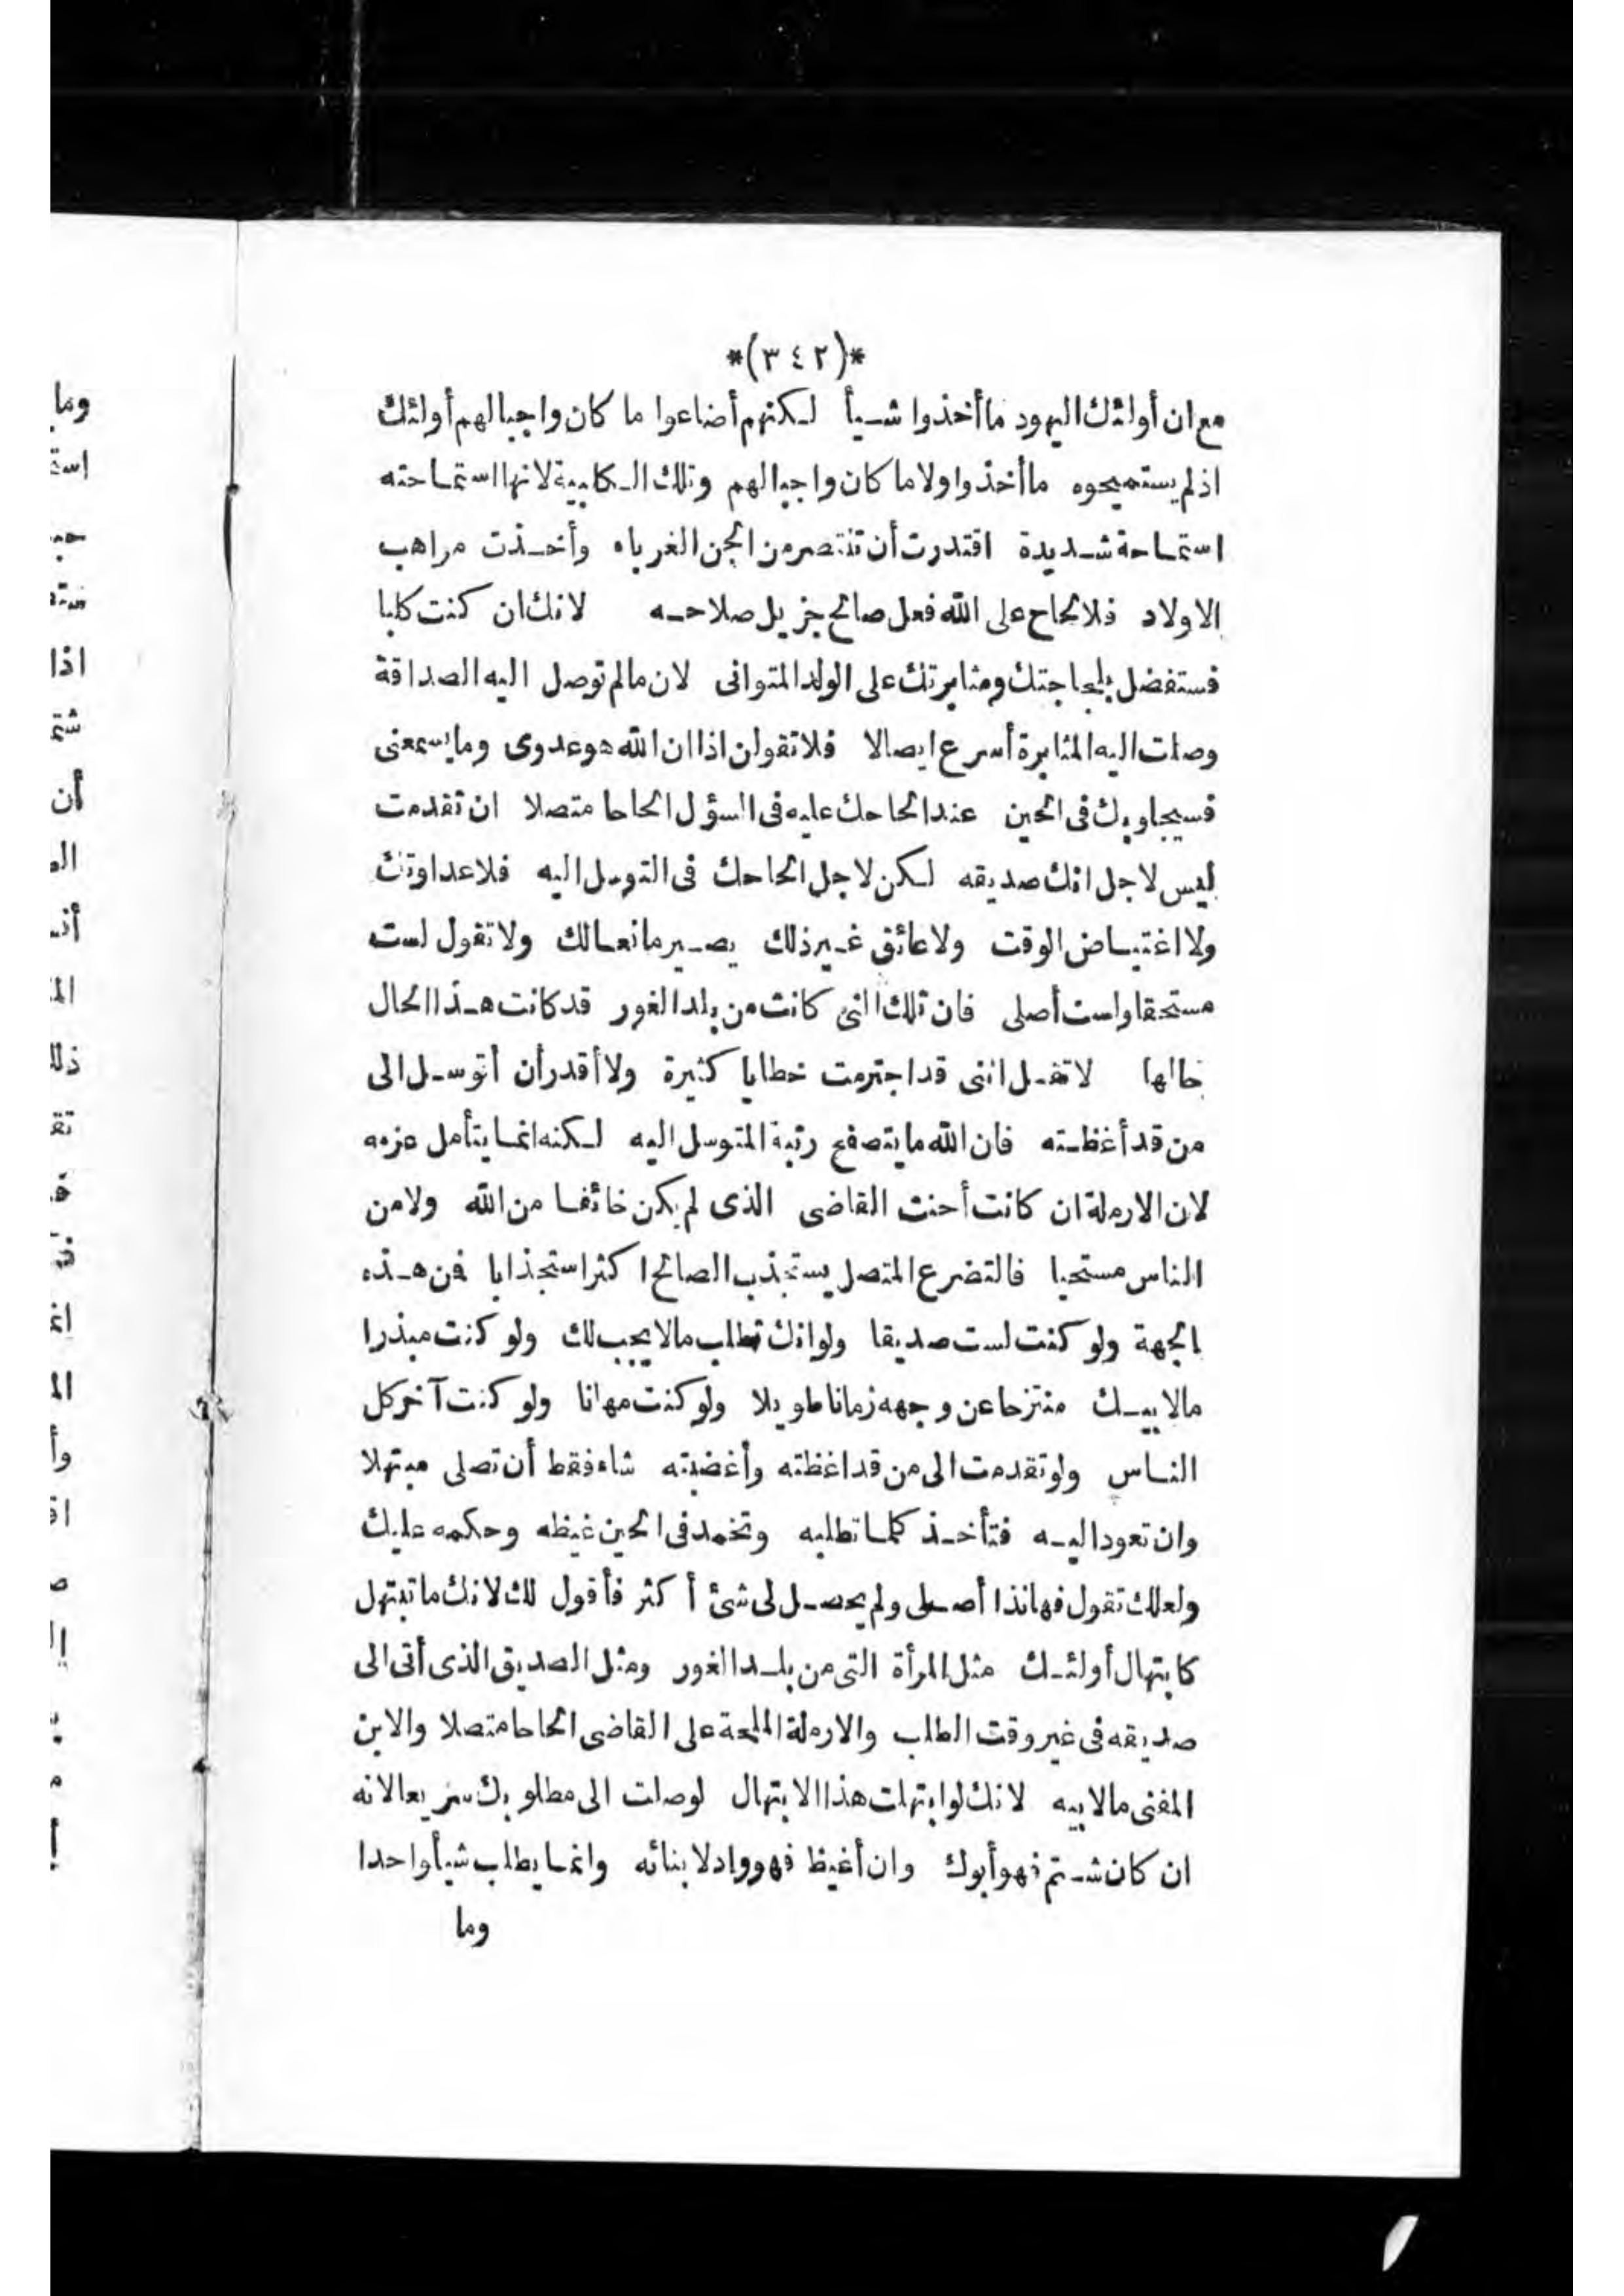 *(٣٤٢)*
مع ان أولئك اليهود ما أخذوا شيأ لكنهم أضاعوا ما كان واجبا لهم أولئك
اذ لم يستميحوه ما أخذوا ولا ما كان واجبا لهم وتلك الكلبية لانها استماحته
استماحة شديدة اقتدرت أن تنتصر من الجن الغرباء وأخذت مراهب
الاولاد فلالحاح على الله فعل صالح جزيل صلاحه لانك ان كنت كلبا
فستفضل بلجاجتك ومثابرتك على الولد المتوانى لان مالم توصل اليه الصداقة
وصلت اليه المثابرة أسرع ايصالا فلا تقولن اذا ان الله هو عدوى وما يسمعنى
فسيجاوبك فى الحين عند الحاحك عليه فى السؤل الحاحا متصلا ان تقدمت
ليس لاجل انك صديقه لكن لاجل الحاحك فى التوسل اليه فلا عداوتك
ولا اغتياض الوقت ولا عائق غير ذلك يصير مانعا لك ولا تقول لست
مستحقا ولست أصلى فان تلك التى كانت من بلد الغور قد كانت هذا الحال
حالها لا تقل اننى قد اجترمت خطايا كثيرة ولا أقدر أن أتوسل الى
من قد أغظته فان الله ما يتصفح رتبة المتوسل اليه لكنه انما يتأمل عزمه
لان الارملة ان كانت أحنت القاضى الذى لم يكن خائفا من الله ولا من
الناس مستحيا فالتضرع المتصل يستجذب الصالح اكثر استجذابا فمن هذه
الجهة ولو كنت لست صديقا ولو انك تطلب مالا يجب لك ولو كنت مبذرا
مال ابيك منتزحا عن وجهه زمانا طويلا ولو كنت مهانا ولو كنت آخر كل
الناس ولو تقدمت الى من قد اغظته وأغضبته شاء فقط أن تصلى مبتهلا
وان تعود اليه فتأخذ كلما تطلبه وتخمد فى الحين غيظه وحكمه عليك
ولعلك تقول فهانذا أصلى ولم يحصل لى شئ أكثر فأقول لك لانك ما تبتهل
كابتهال أولئك مثل المرأة التى من بلد الغور ومثل الصديق الذى أتى الى
صديقه فى غير وقت الطلب والارملة الملحة على القاضى الحاحا متصلا والابن
المفنى مال ابيه لانك لو ابتهلت هذا الابتهال لوصلت الى مطلوبك سريعا لانه
ان كان شتم فهو أبوك وان أغيظ فهو واد لابنائه وانما يطلب شيأ واحدا
وما